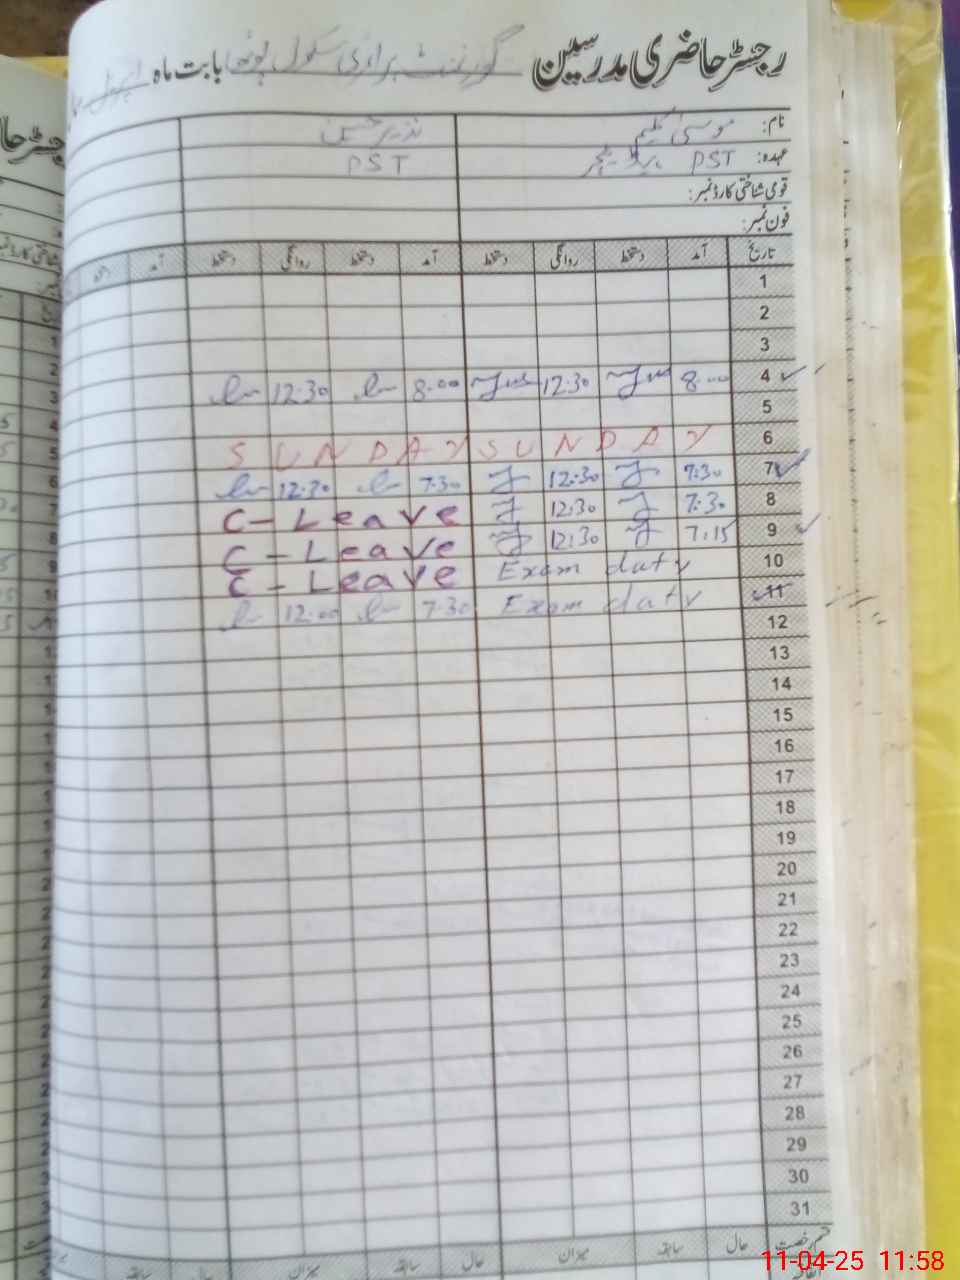 رجسٹر حاضری مدرسین گورنمنٹ پرائمری سکول بابت ماہ اپریل
نام: موسیٰ کلیم نذیر حسین
عہدہ: PST ہیڈ ٹیچر PST
قومی شناختی کارڈ نمبر:
فون نمبر:
تاریخ آمد دستخط روانگی دستخط آمد دستخط روانگی دستخط آمد
1
2
3
4 8.00 12.30 8.00 12.30
5
6 SUNDAY SUNDAY
7 7:30 12:30 7.30 12.30
8 7:30 12:30 C- Leave
9 7:15 12:30 C - Leave
10 Exam duty C - Leave
11 Exam duty 7.30 12.00
12
13
14
15
16
17
18
19
20
21
22
23
24
25
26
27
28
29
30
31
قسم رخصت حال سابقہ میزان حال سابقہ میزان حال سابقہ
11-04-25 11:58